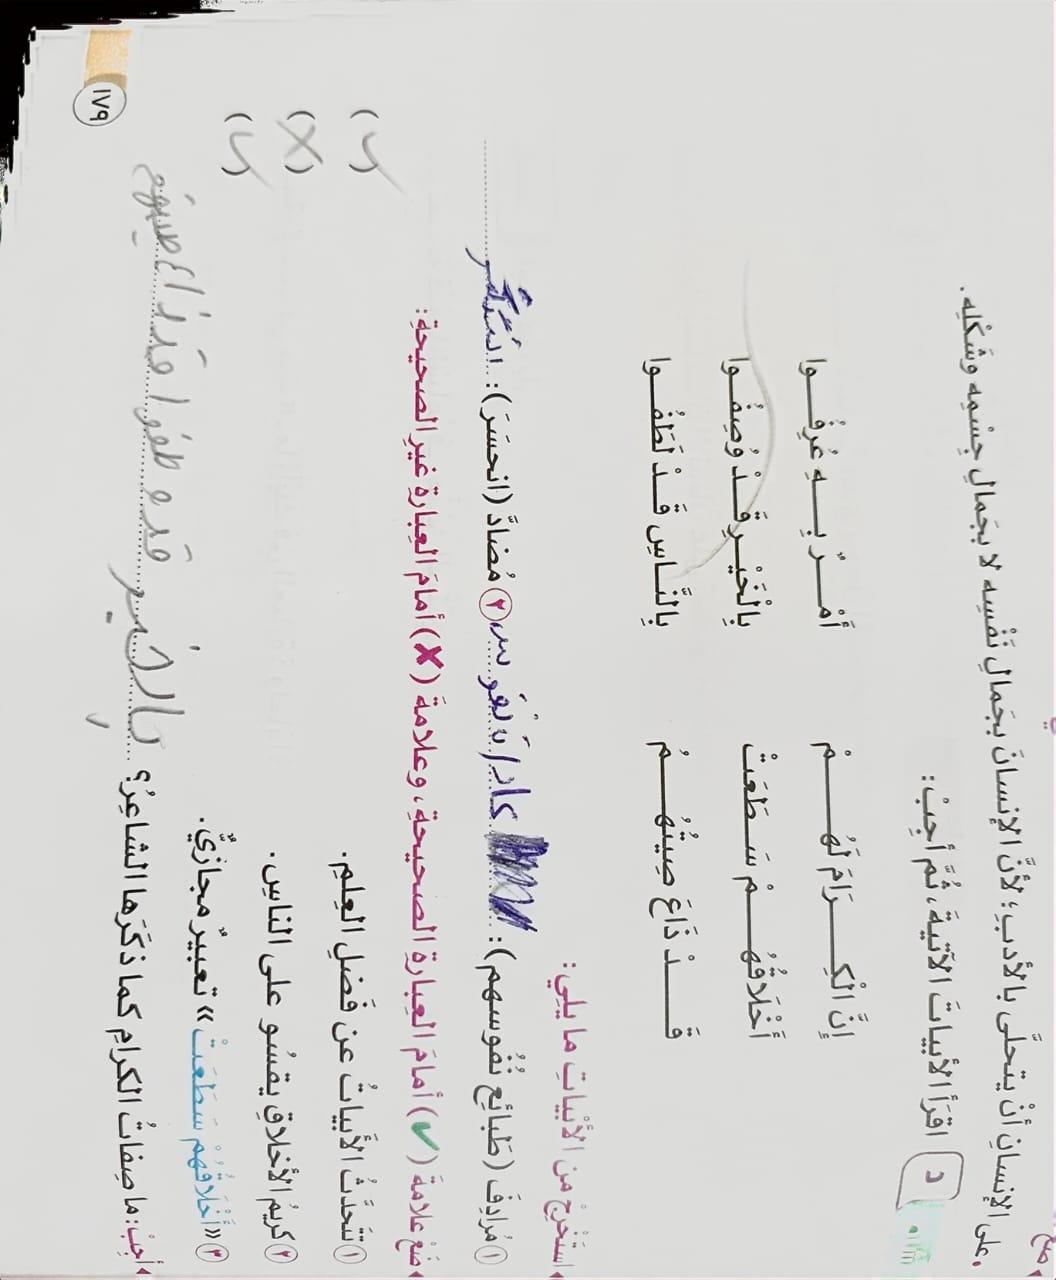 على الإنسانِ أنْ يتحلَّى بالأدبِ؛ لأنَّ الإنسانَ بجَمالِ نَفْسِه لا بجَمالِ جِسْمِه وشَكْلِه.
د اقرَأ الأبياتَ الآتيةَ، ثمَّ أجِبْ:
إِنَّ الْكِــــرَامَ لَهُــــمْ أَمْــــرٌ بِــــهِ عُرِفُــــوا
أَخْلَاقُهُــــمْ سَــــطَعَتْ بِالْخَيْــــرِ قَــــدْ وُصِفُــــوا
قَــــدْ ذَاعَ صِيتُهُــــمُ بِالنَّــــاسِ قَــــدْ لَطَفُــــوا
استَخْرِجْ من الأبْياتِ ما يلِي:
١ مُرادِفَ (طَبائِع نُفُوسهم): ٢ مُضادَّ (انحسَرَ):
ضَعْ علامةَ (✓) أمامَ العِبارةِ الصَّحيحةِ، وعلامةَ (✗) أمامَ العِبارةِ غيرِ الصحيحةِ:
١ تَتَحدَّثُ الأبياتُ عن فَضلِ العِلمِ. ( )
٢ كريمُ الأخلاقِ يقسُو على الناسِ. (X)
٣ «أَخْلَاقُهُمْ سَطَعَتْ» تعبيرٌ مجازيٌّ. ( )
أجِبْ: ما صِفاتُ الكرامِ كما ذكَرَها الشاعِرُ؟ بالخير قد و صفوا قد ذاع صيتهم
١٧٩